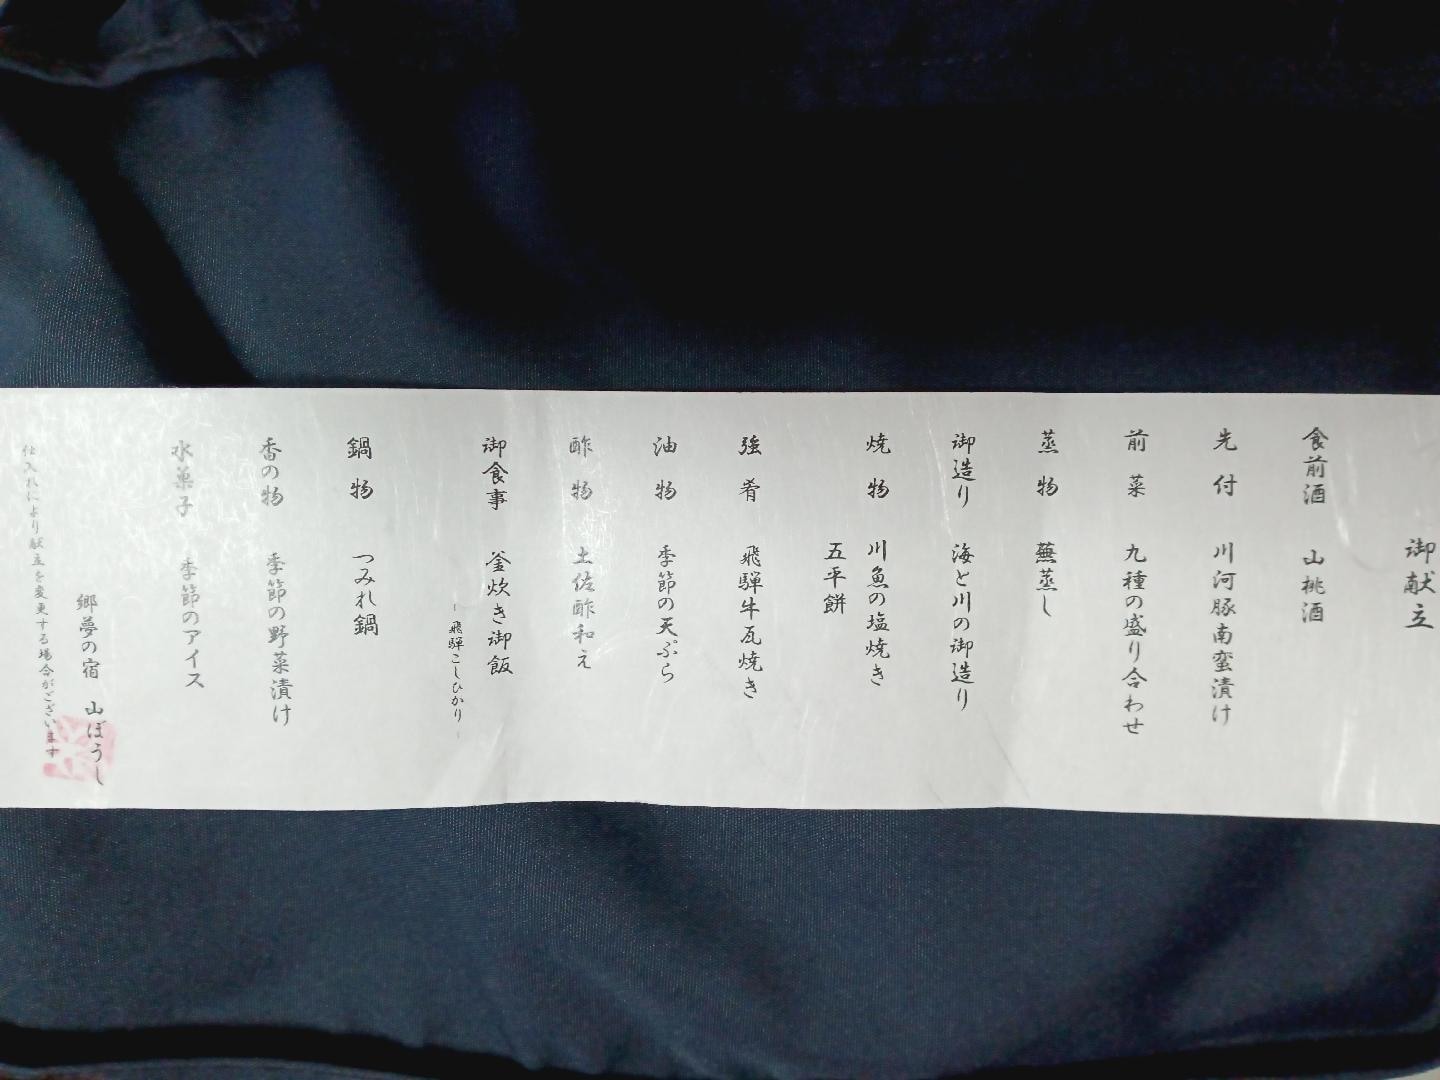 御献立
食前酒　山桃酒
先付　川河豚南蛮漬け
前菜　九種の盛り合わせ
蒸物　蕪蒸し
御造り　海と川の御造り
焼物　川魚の塩焼き
五平餅
強肴　飛騨牛瓦焼き
油物　季節の天ぷら
酢物　土佐酢和え
御食事　釜炊き御飯
- 飛騨こしひかり -
鍋物　つみれ鍋
香の物　季節の野菜漬け
水菓子　季節のアイス
郷夢の宿　山ぼうし
仕入れにより献立を変更する場合がございます